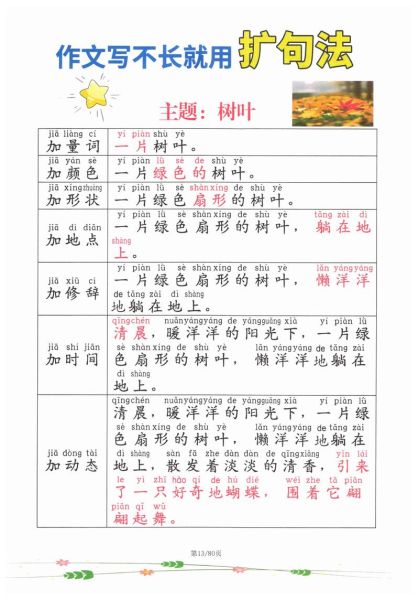 作文写不长就用 扩句法
主题：树叶
jiā liàng cí
加量词
yí piàn shù yè
一片树叶。
jiā yán sè
加颜色
yí piàn lǜ sè de shù yè
一片绿色的树叶。
jiā xíng zhuàng
加形状
yí piàn lǜ sè shàn xíng de shù yè
一片绿色扇形的树叶。
jiā dì diǎn
加地点
yí piàn lǜ sè shàn xíng de shù yè tǎng zài dì
一片绿色扇形的树叶，躺在地
shàng
上。
jiā xiū cí
加修辞
yí piàn lǜ sè shàn xíng de shù yè lǎn yáng yáng
一片绿色扇形的树叶，懒洋洋
de tǎng zài dì shàng
地躺在地上。
jiā shí jiān
加时间
qīng chén nuǎn yáng yáng de yáng guāng xià yí piàn lǜ
清晨，暖洋洋的阳光下，一片绿
sè shàn xíng de shù yè lǎn yáng yáng de tǎng zài
色扇形的树叶，懒洋洋地躺在
dì shàng
地上。
jiā dòng tài
加动态
qīng chén nuǎn yáng yáng de yáng guāng xià yí piàn lǜ
清晨，暖洋洋的阳光下，一片绿
sè shàn xíng de shù yè lǎn yáng yáng de tǎng zài
色扇形的树叶，懒洋洋地躺在
dì shàng sàn fā zhe dàn dàn de qīng xiāng yǐn lái
地上，散发着淡淡的清香，引来
le yì zhī hào qí de hú dié wéi zhe tā piān
了一只好奇地蝴蝶，围着它翩
piān qǐ wǔ
翩起舞。
第13/80页